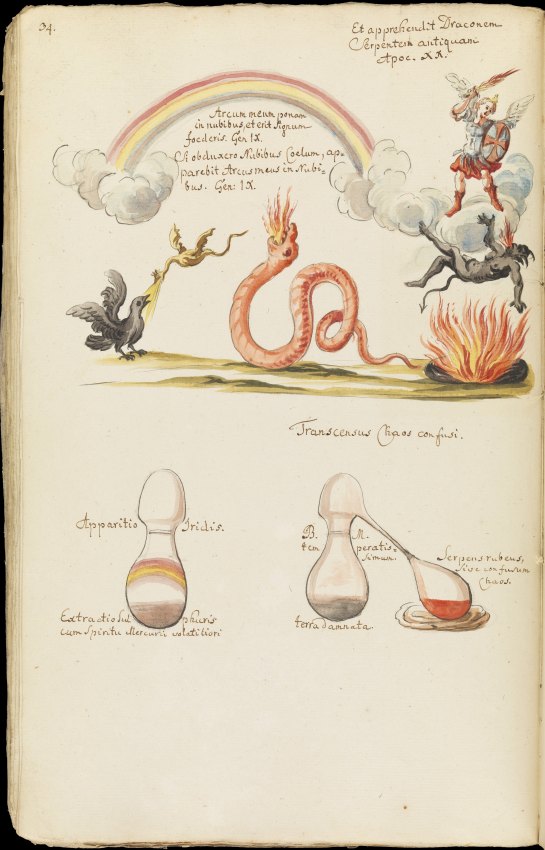 34.
Et apprehendit Draconem
Serpentem antiquum
Apoc. XX.
Arcum meum ponam
in nubibus, et erit signum
foederis. Gen IX.
Si obduxero Nubibus Coelum, ap-
parebit Arcus meus in Nubi-
bus. Gen: IX.
Transcensus Chaos confusi.
Apparitio Iridis.
Extractio Sulphuris
cum Spiritu Mercurii volatiliori
B. M.
temperatis-
simum.
terra damnata.
Serpens rubeus,
sive confusum
Chaos.